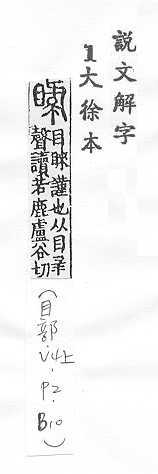 説文解字
1大徐本
睩
目睞謹也从目彔
聲讀若鹿盧谷切
（目部．V4上．P2．B10）